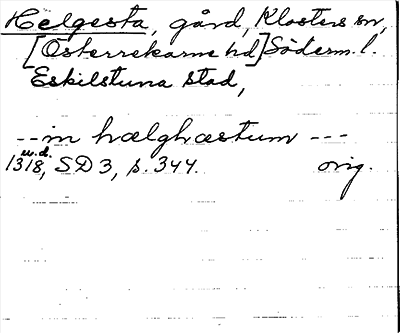 Helgesta, gård, Klosters sn,
[Österrekarne hd] Söderm. l.
Eskilstuna stad,
--in hælghæstum ---
u.d.
1318, SD 3, s. 344. orig.